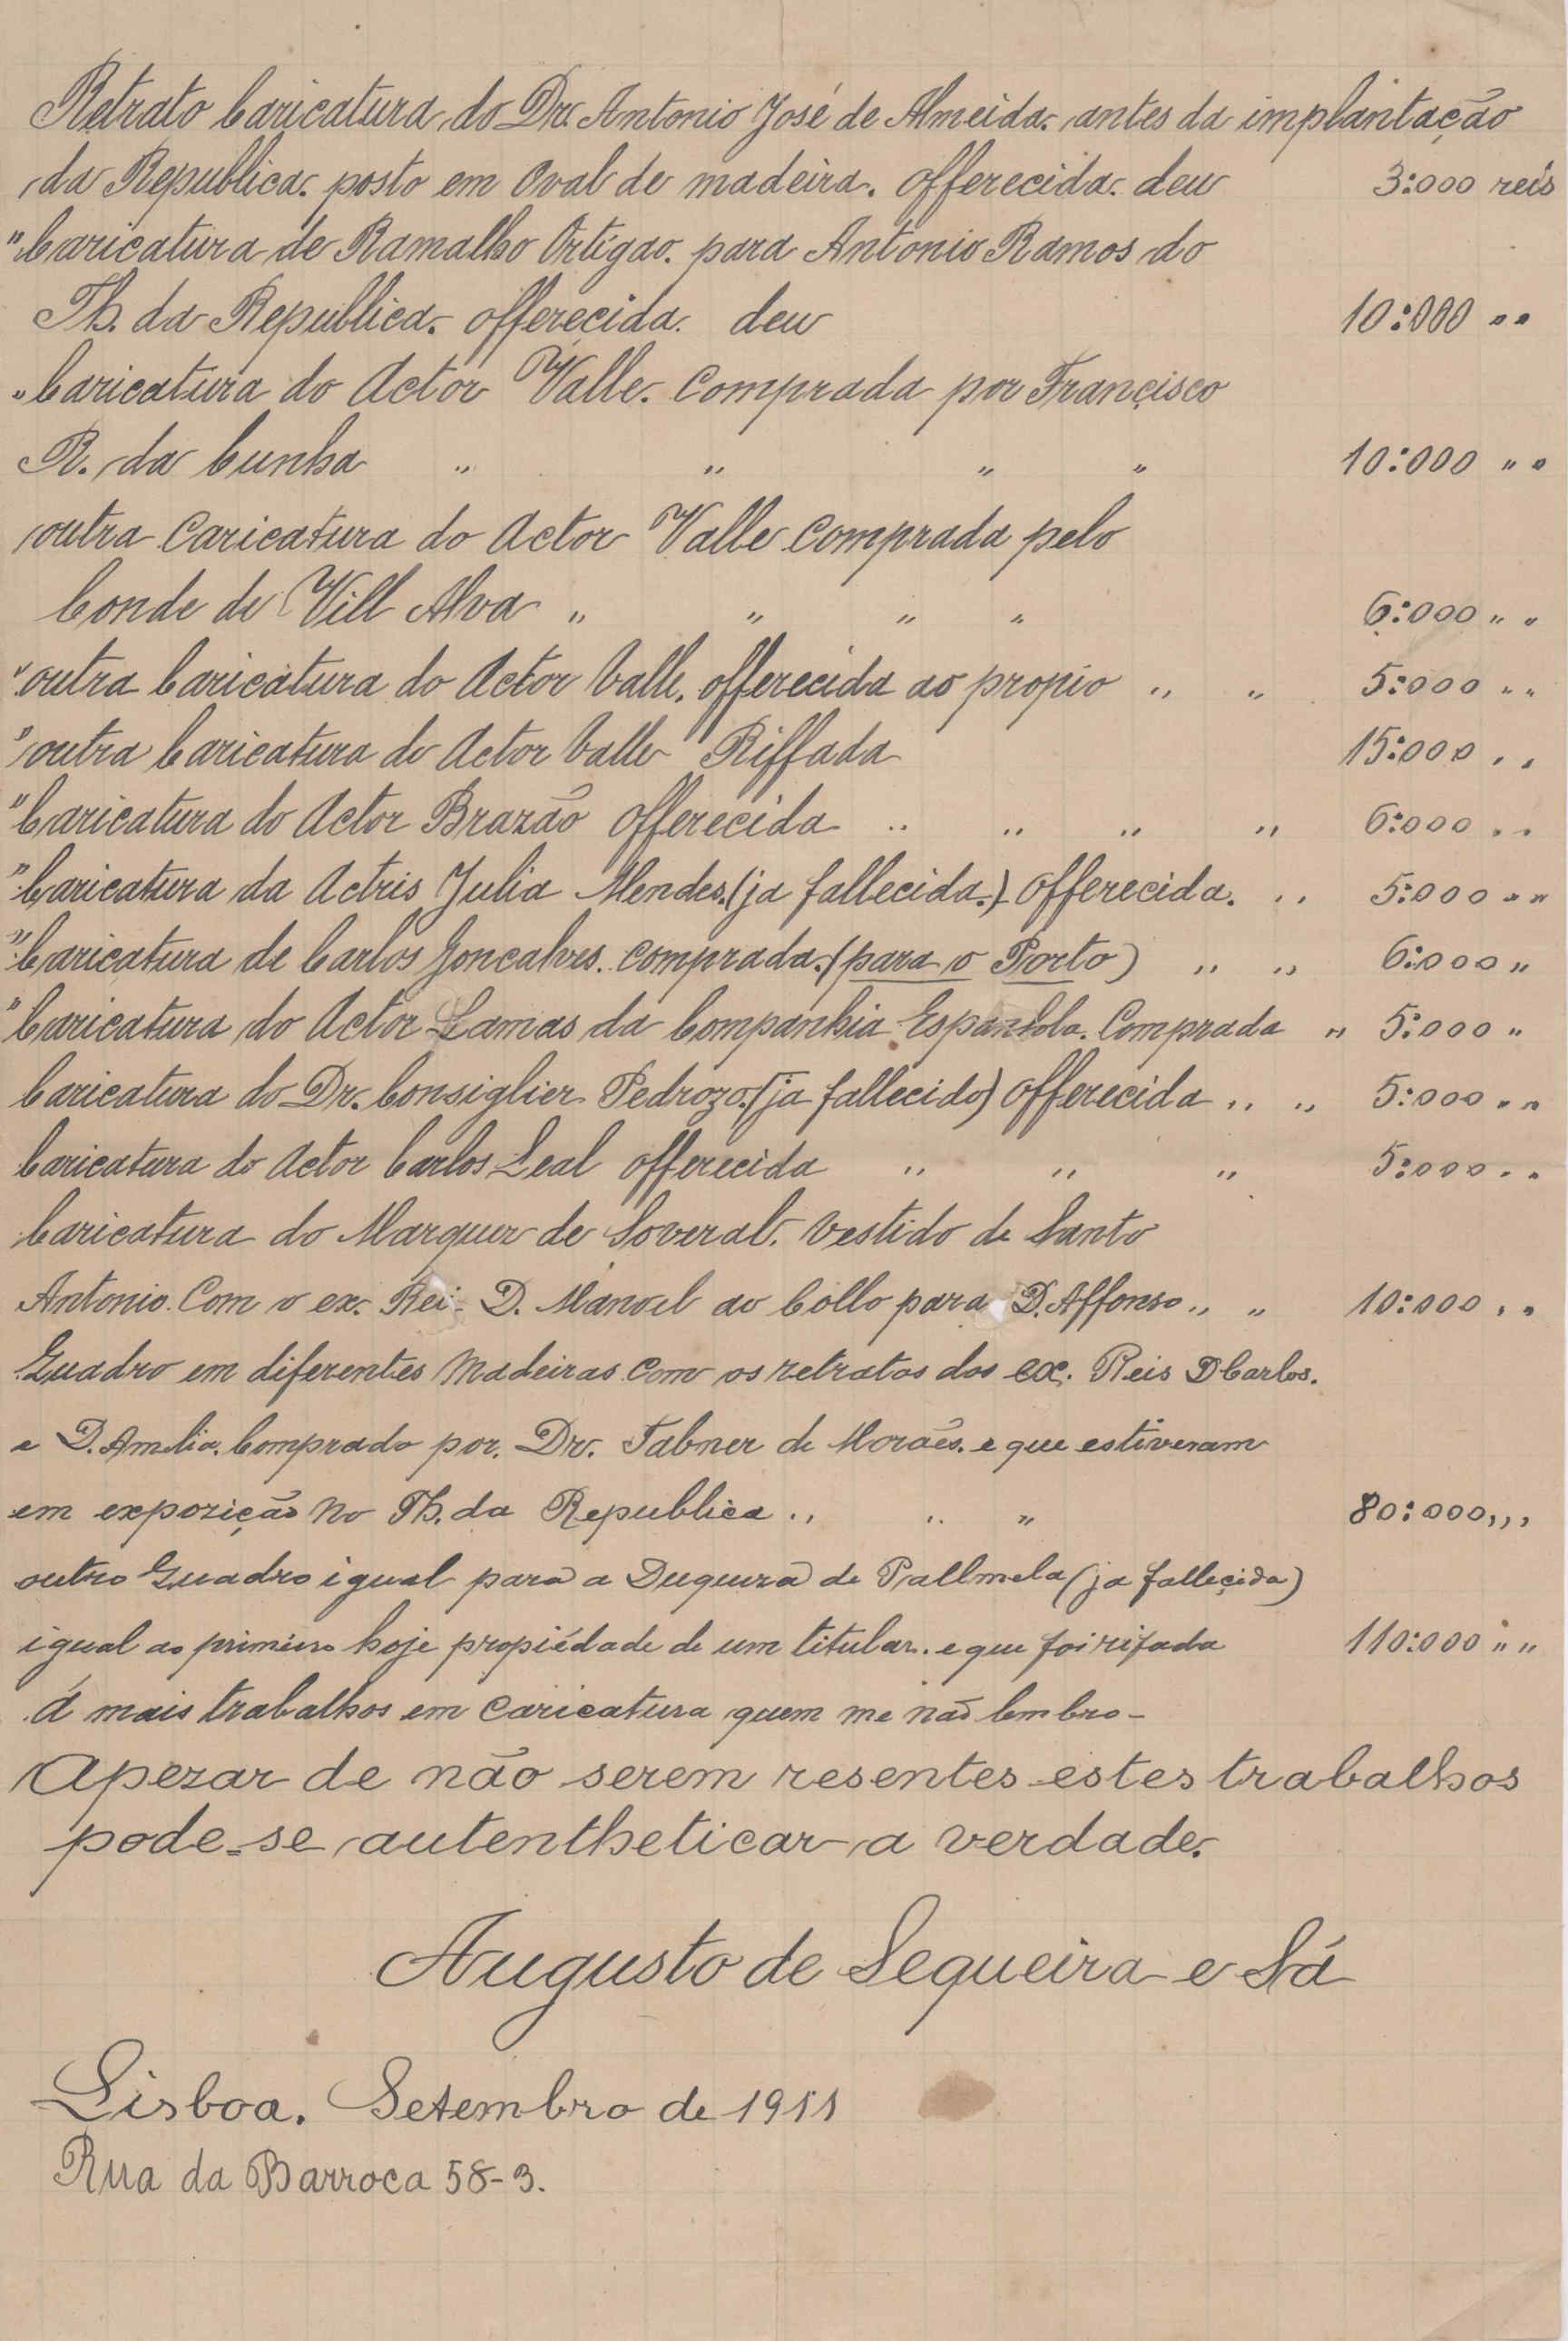 Retrato Caricatura do Dr. Antonio José de Almeida. antes da implantação
da Republica. posto em Oval de madeira. offerecida. deu 3:000 reis
" Caricatura de Ramalho Ortigao. para Antonio Ramos do
Th. da Republica. offerecida. deu 10:000 " "
" Caricatura do Actor Valle. Comprada por Françisco
R. da Cunha " " " " 10:000 " "
outra Caricatura do Actor Valle Comprada pelo
Conde de Vill Alva " " " " 6:000 " "
" outra Caricatura do Actor Valle. offerecida ao propio " " 5:000 " "
" outra Caricatura do Actor Valle Riffada 15:000 " "
" Caricatura do Actor Brazão offerecida " " " " 6:000 " "
" Caricatura da Actris Julia Mendes. (ja fallecida.) offerecida. " 5:000 " "
" Caricatura de Carlos Goncalves. comprada. (para o Porto) " " 6:000 "
" Caricatura do Actor Lamas da Companhia Espanhola. Comprada " 5:000 "
Caricatura do Dr. Consiglier Pedrozo. (ja fallecido) offerecida " " 5:000 " "
Caricatura do Actor Carlos Leal offerecida " " " 5:000 " "
Caricatura do Marquez de Soveral. Vestido de Santo
Antonio. Com o ex. Rei D. Manoel ao Collo para D. Affonso " " 10:000 " "
Quadro em diferentes Madeiras com os retratos dos ex. Reis D Carlos.
e D. Amelia. Comprado por. Dr. Tabner de Moraes. e que estiveram
em expozição no Th. da Republica " " " 80:000 " "
outro Quadro igual para a Duqueza de Pallmela (ja falleçida)
igual ao primeiro hoje propiédade de um titular. e que foi rifada 110:000 " "
á mais trabalhos em Caricatura quem me não lembro -
Apezar de não serem resentes estes trabalhos
pode-se autentheticar a verdade.
Augusto de Sequeira e Sá
Lisboa. Setembro de 1911
Rua da Barroca 58-3.